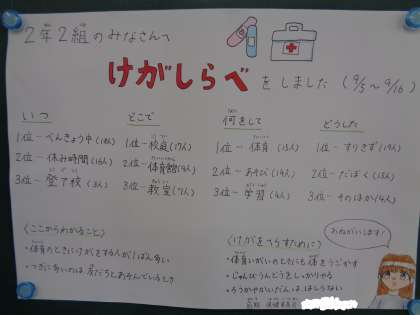 2年2組のみなさんへ
けがしらべをしました(9/5〜9/16)
いつ
1位-べんきょう中(18人)
2位-休み時間(16人)
3位-登下校(3人)
どこで
1位-校庭(17人)
2位-体育館(9人)
3位-教室(7人)
何をして
1位-体育(15人)
2位-あそび(14人)
3位-学習(4人)
どうした
1位-すりきず(19人)
2位-だぼく(15人)
3位-そのほか(4人)
〈ここからわかること〉
・体育のときにけがをする人がいちばん多い
・つぎに多いのは友だちとあそんでいるとき
〈けがをへらすために〉
・体育いがいのときにも体をうごかす
・じゅんびうんどうをしっかりやる
・ろうかやかいだんは、はしらない
おねがいします!
保健委員会